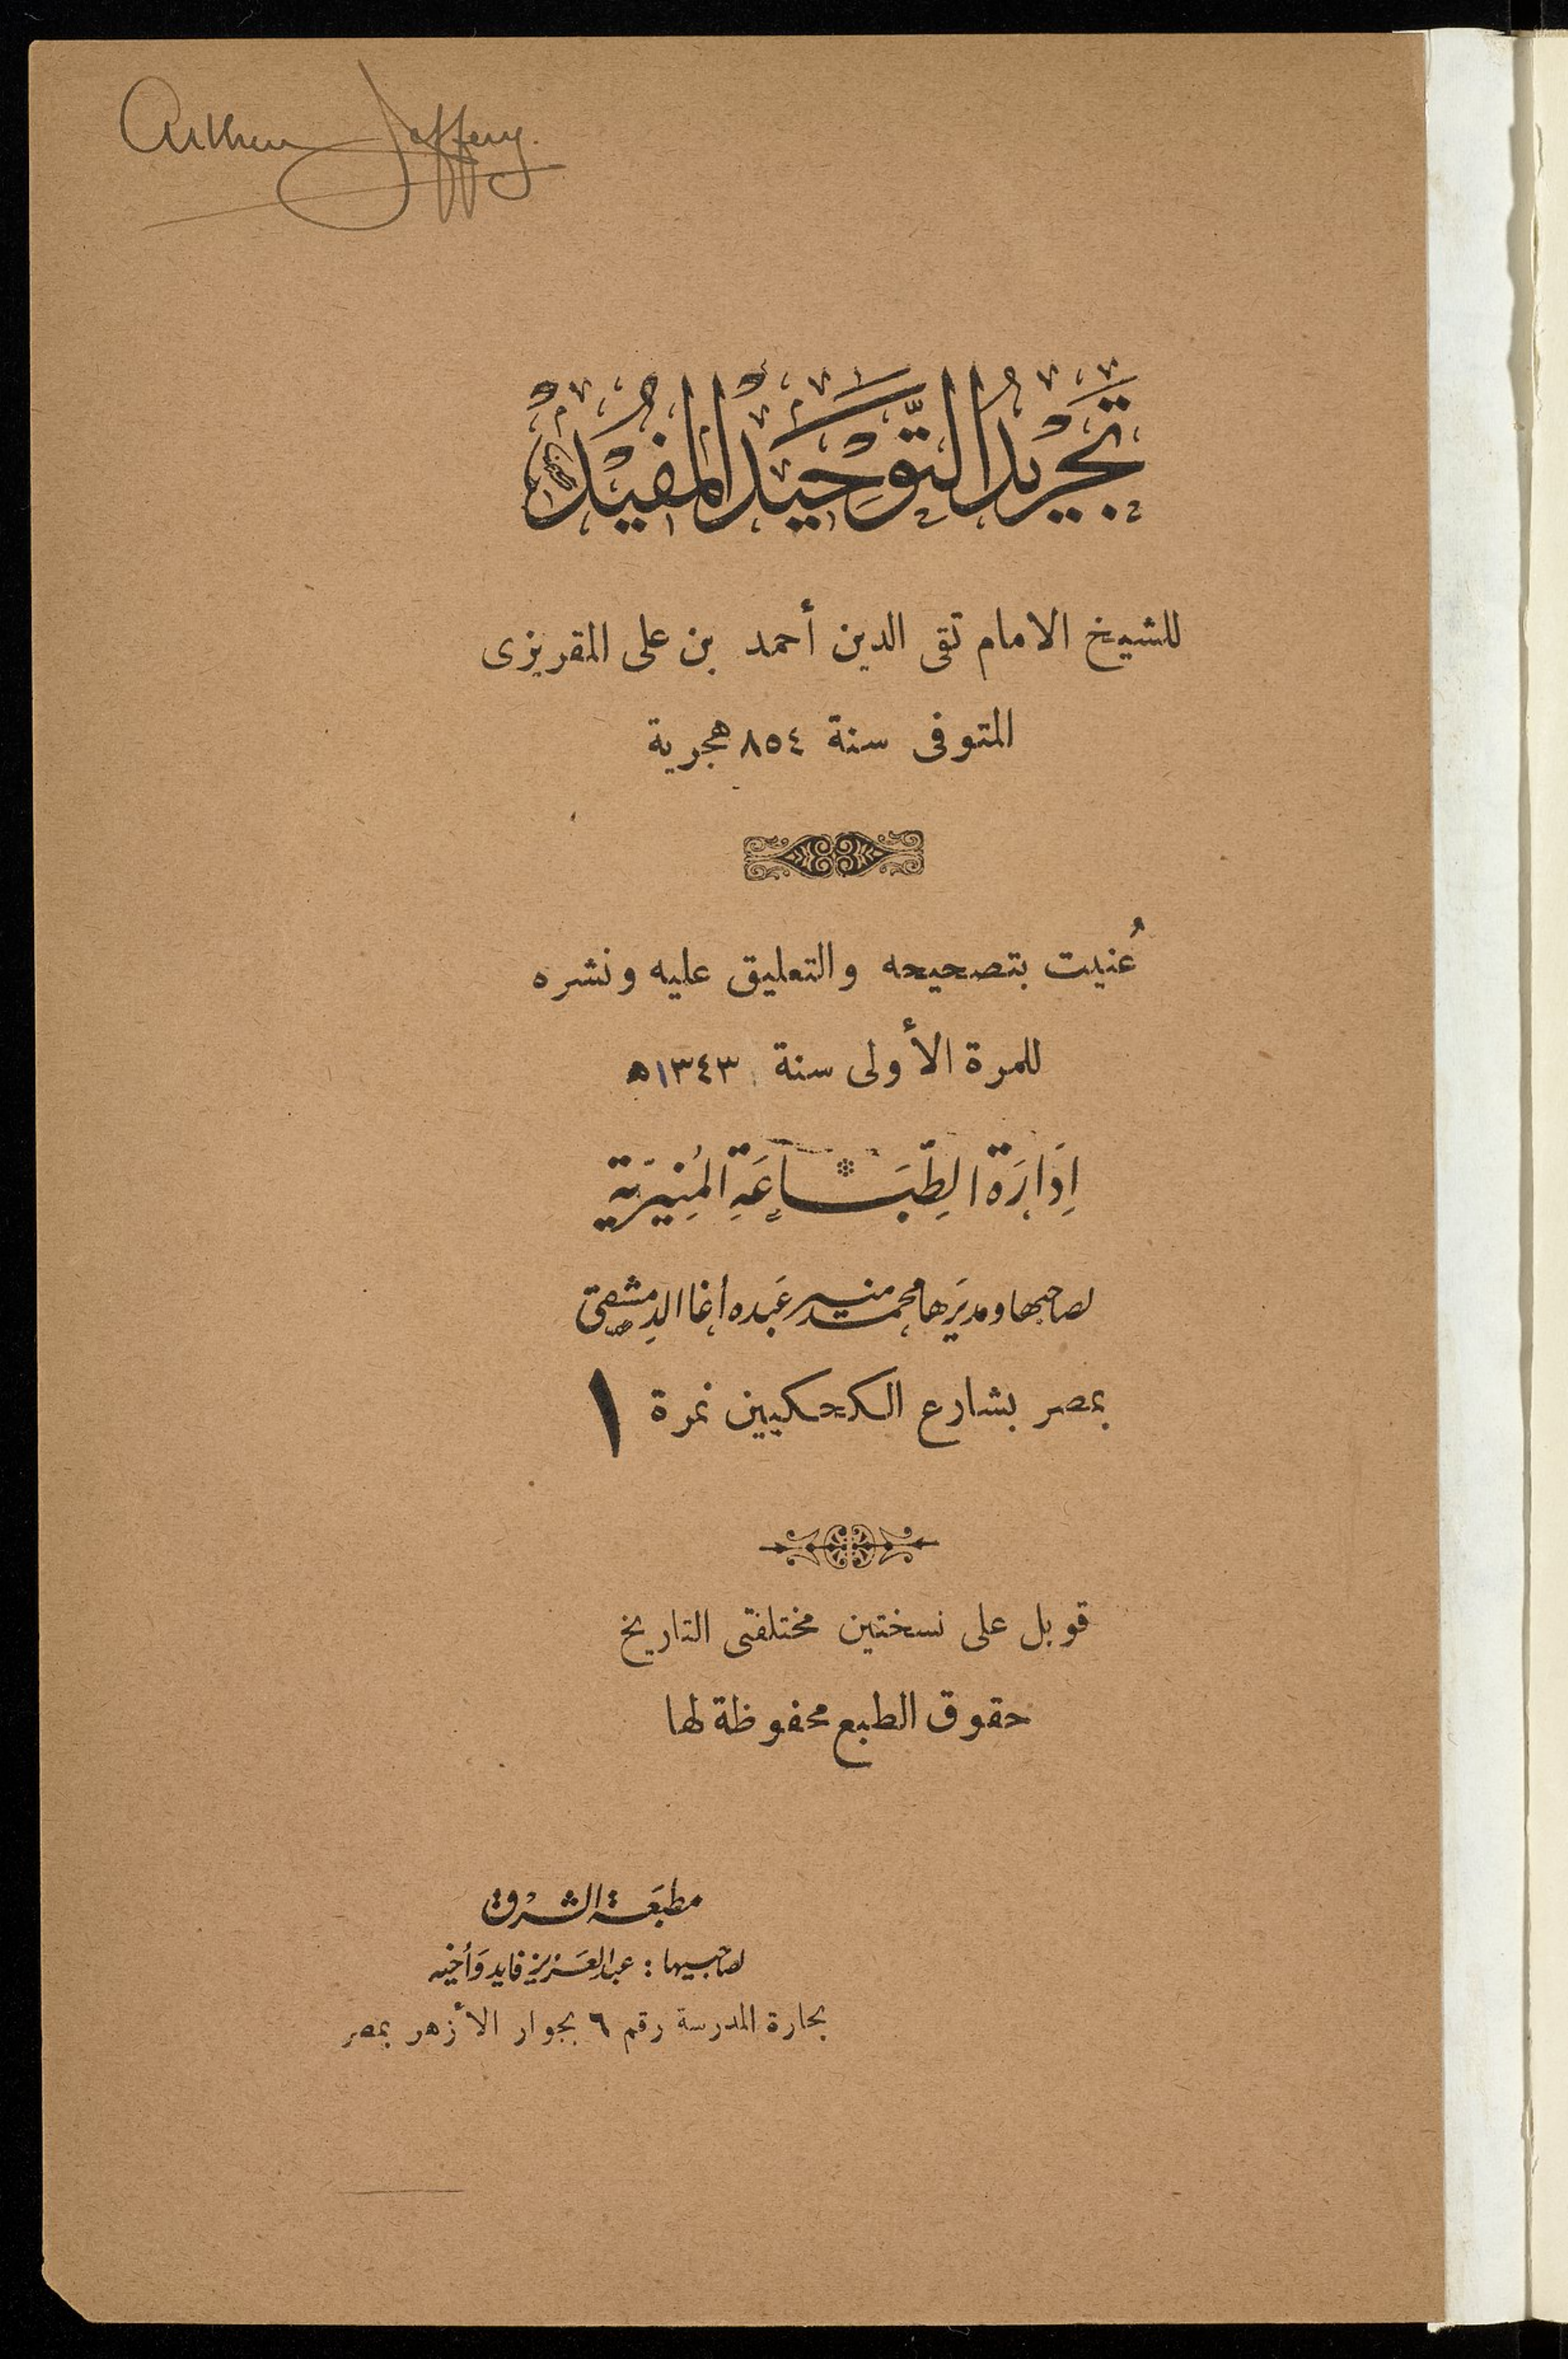 Arthur Jeffery.
تَجْرِيدُ التَّوْحِيدِ الْمُفِيدْ
للشيخ الامام تقى الدين أحمد بن على المقريزى
المتوفى سنة ٨٥٤ هجرية
عُنيت بتصحيحه والتعليق عليه ونشره
للمرة الأولى سنة ١٣٤٣ ه
إِدَارَة الطِّبَاعَةِ الْمُنِيرَيّة
لصاحبها ومديرها محمد منير عبده أغا الدمشقي
بمصر بشارع الكحكيين نمرة ١
قوبل على نسختين مختلفتى التاريخ
حقوق الطبع محفوظة لها
مطبعَة الشرْق
لصاحبيها : عبد العَزيز فايد وَأخيه
بحارة المدرسة رقم ٦ بجوار الأزهر بمصر